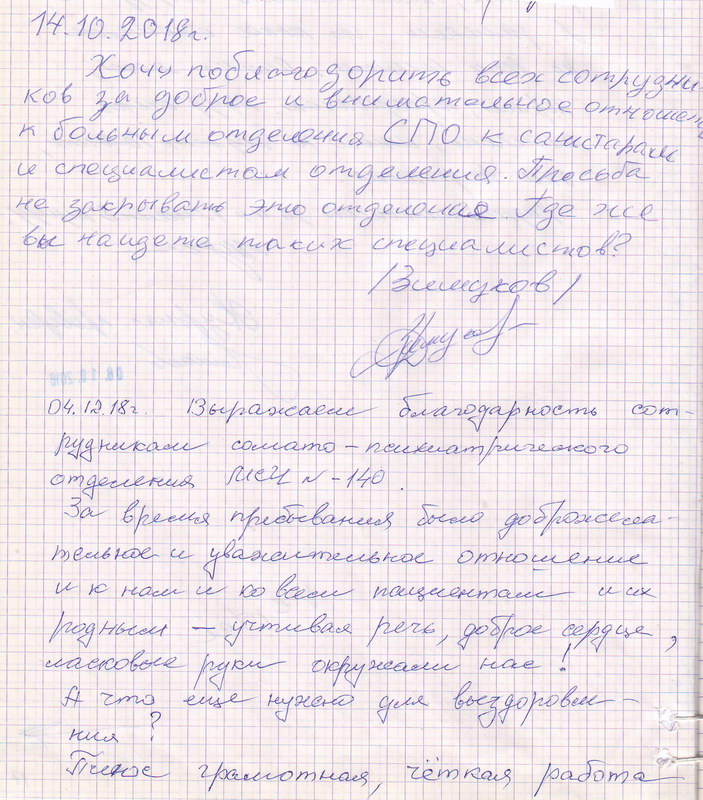 14.10.2018г.
Хочу поблагодорить всех сотрудни-
ков за доброе и внимательное отношен
к больным отделения СПО к санитарам
и специалистам отделения. Просьба
не закрывать это отделение. Где же
вы найдете таких специалистов?
/Зимуков/
04.12.18г. Выражаем благодарность сот-
рудникам сомато-психиатрического
отделения МСЧ N-140.
За время пребывания было доброжела-
тельное и уважительное отношение
и к нам и ко всем пациентам и их
родным – учтивая речь, доброе сердце,
ласковые руки окружали нас!
А что еще нужно для выздоровле-
ния?
Плюс грамотная, чёткая работа